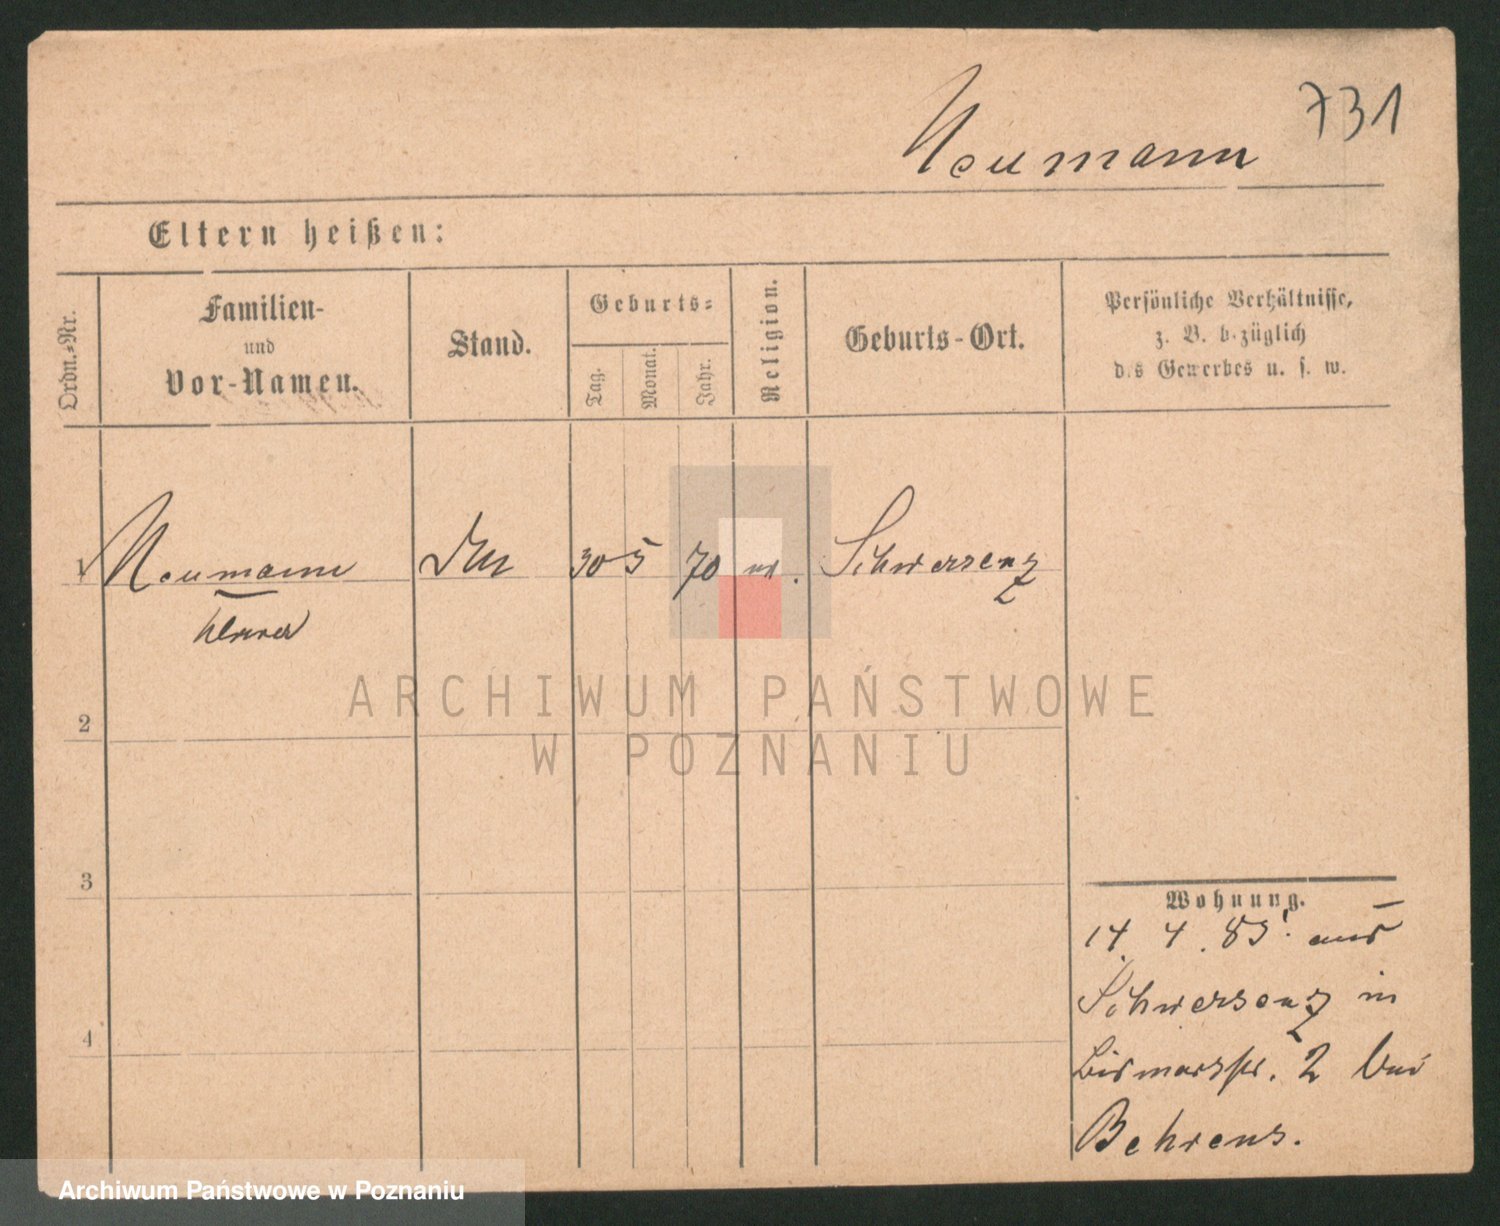 Neumann 731
Eltern heißen:
Ordn.=Nr.
Familien-
und
Vor-Namen.
Stand.
Geburts=
Tag.
Monat.
Jahr.
Religion.
Geburts-Ort.
Persönliche Verhältnisse,
z. B. bezüglich
des Gewerbes u. s. w.
1 Neumann 30 5 70 Schwersenz
2
3
4
Wohnung.
14. 4. 89. aus
Schwersenz in
Bismarckstr. 2 bei
Behrens.
ARCHIWUM PAŃSTWOWE
W POZNANIU
Archiwum Państwowe w Poznaniu